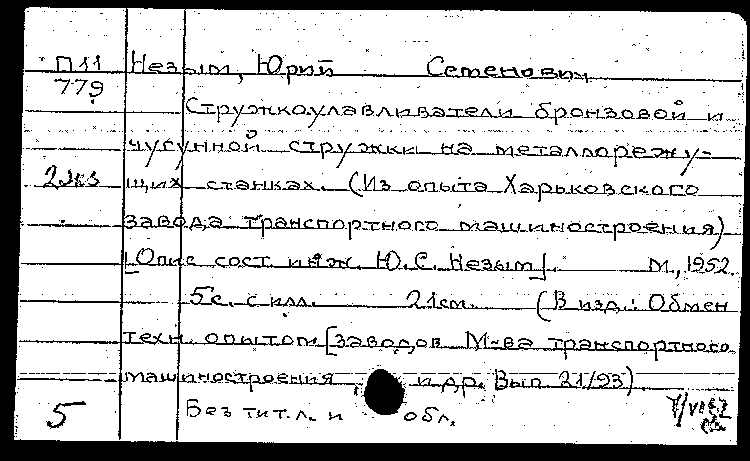 П11 Незым, Юрий Семенович
779
Стружкоулавливатели бронзовой и
чугунной стружки на металлорежу-
2экз щих станках. (Из опыта Харьковского
завода транспортного машиностроения)
[Опис. сост. инж. Ю.С. Незым]. М., 1952
5с. с илл. 21см. (В изд.: Обмен
техн. опытом [заводов М-ва транспортного
машиностроения и др. Вып. 21/93).
5 Без тит. л. и обл.